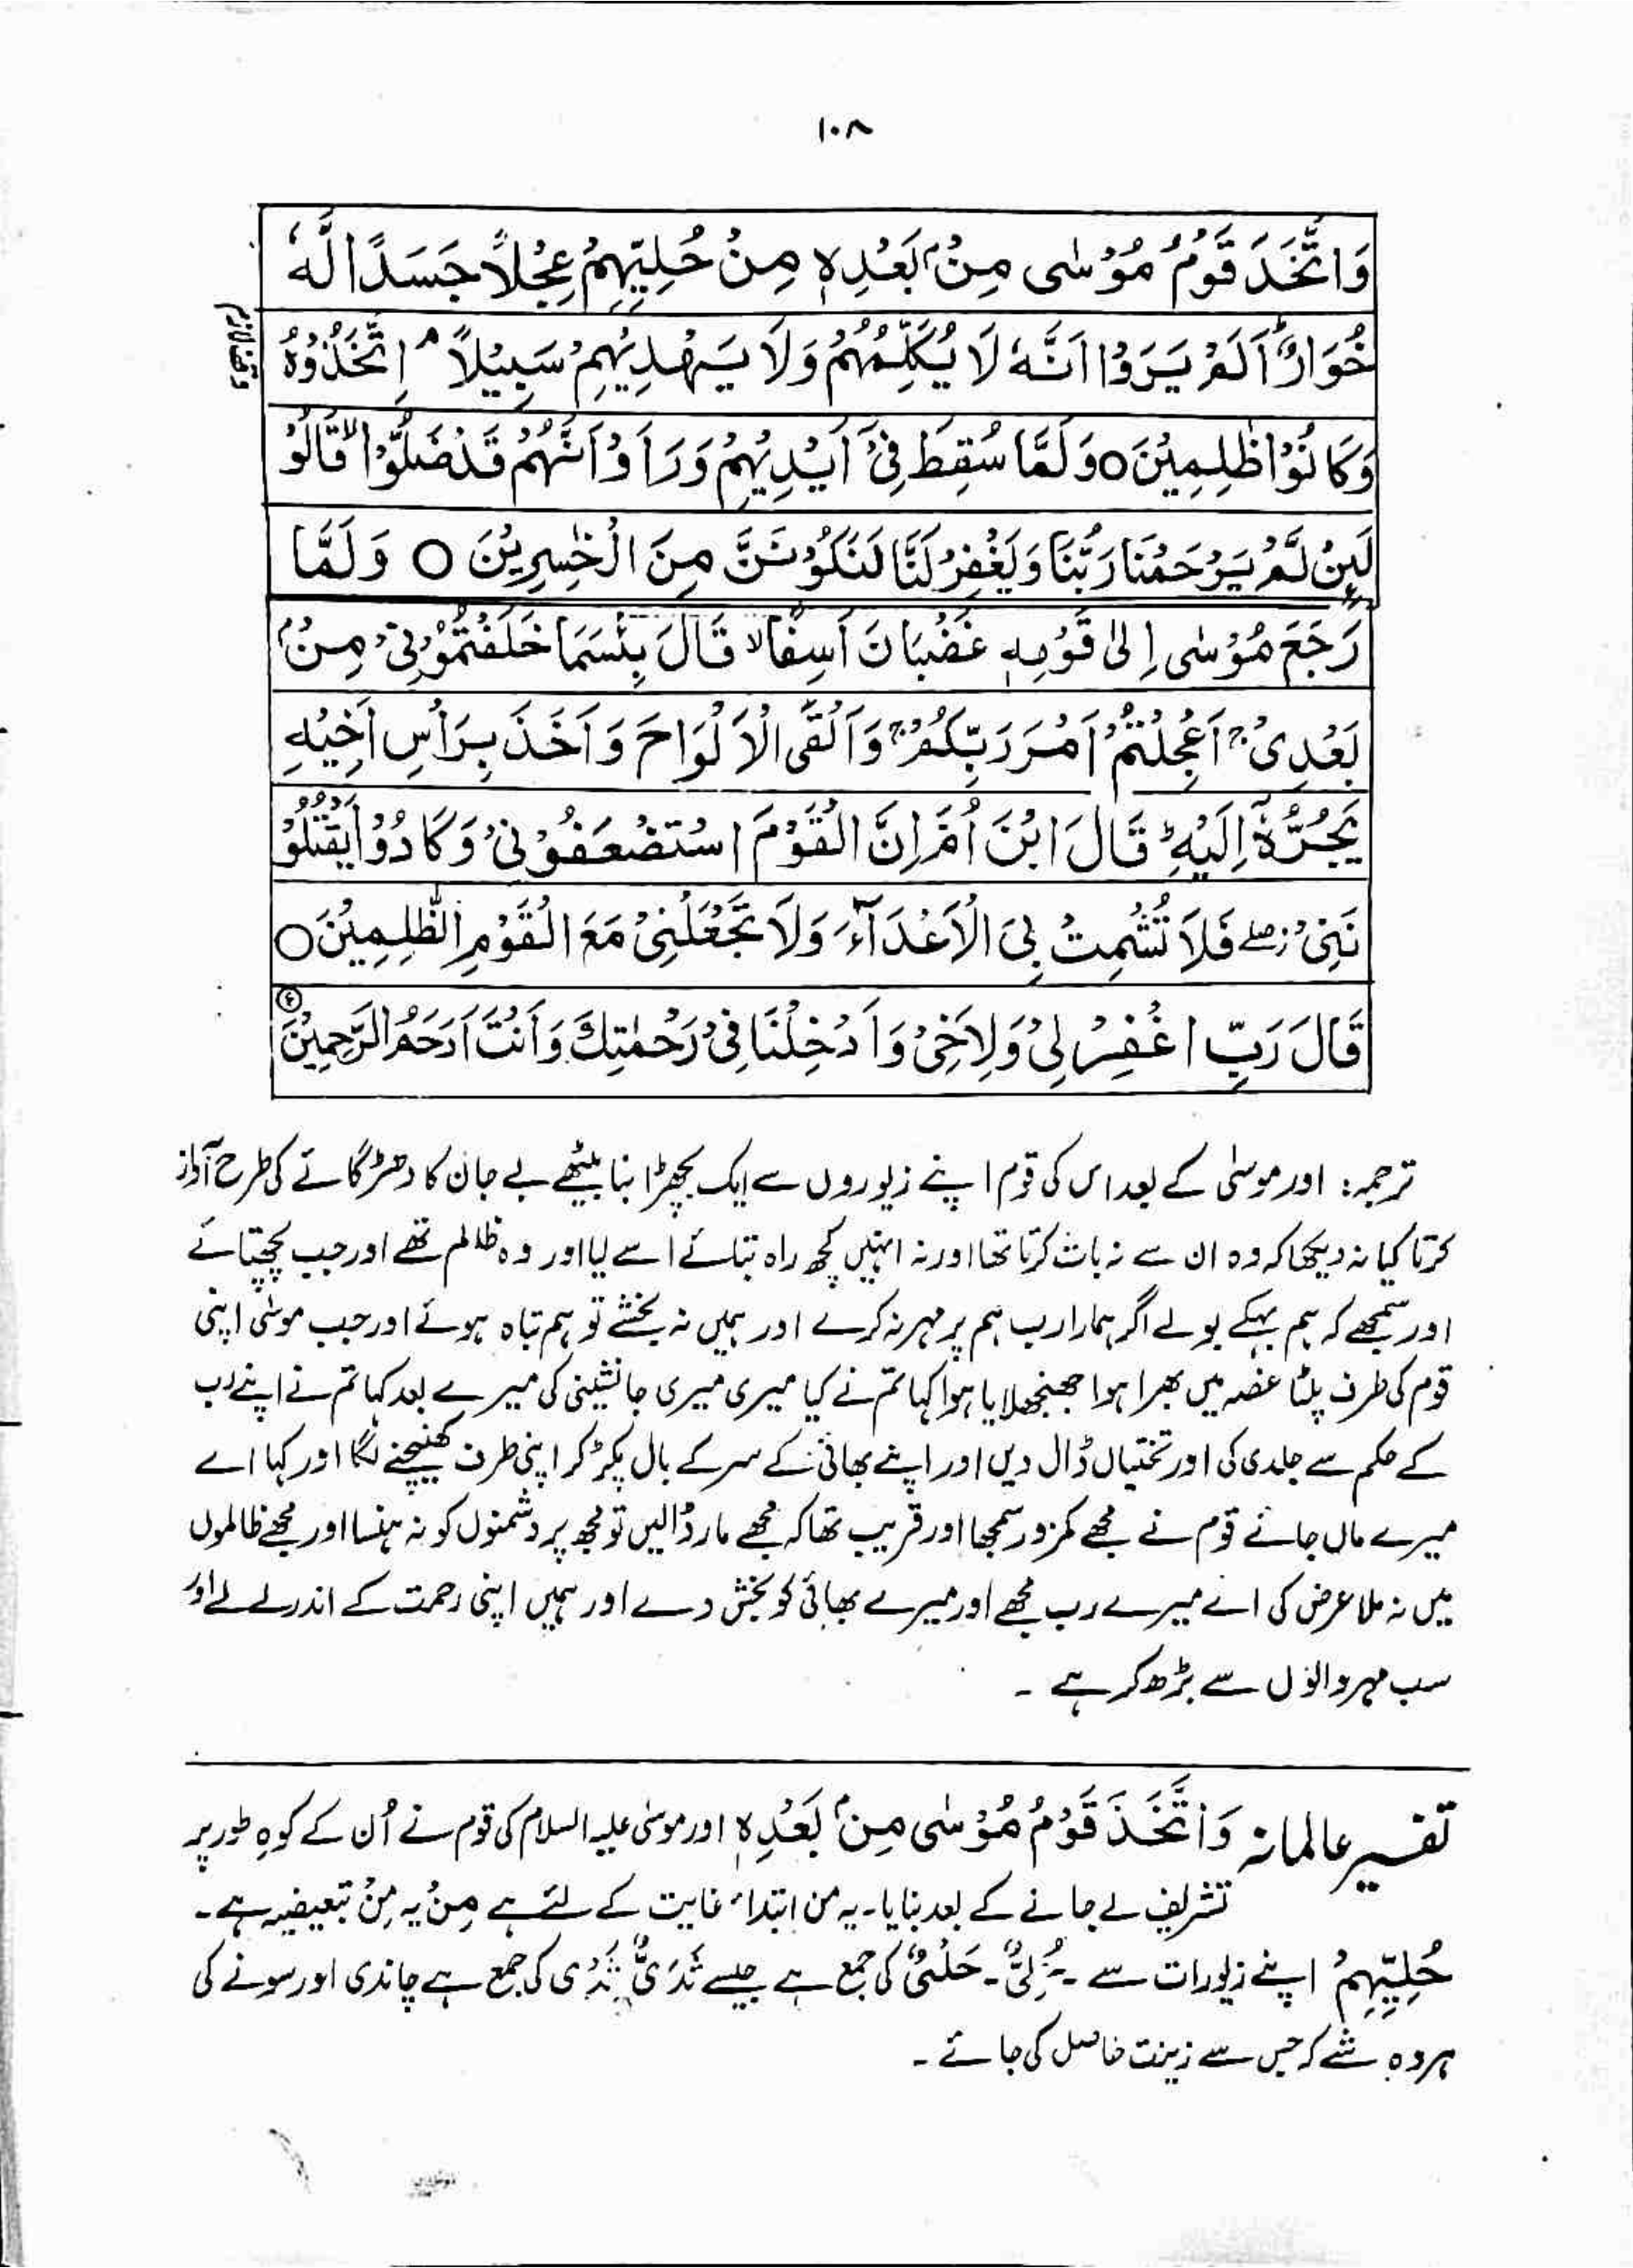 ۱۰۸
وَاتَّخَذَ قَوْمُ مُوْسٰى مِنْۢ بَعْدِهٖ مِنْ حُلِيِّهِمْ عِجْلًا جَسَدًا لَّهٗ
خُوَارٌ ؕ اَلَمْ يَرَوْا اَنَّهٗ لَا يُكَلِّمُهُمْ وَلَا يَهْدِيْهِمْ سَبِيْلًا ۘ اِتَّخَذُوْهُ
وقف لازم
وَكَانُوْا ظٰلِمِيْنَ ○ وَلَمَّا سُقِطَ فِيْۤ اَيْدِيْهِمْ وَرَاَوْا اَنَّهُمْ قَدْ ضَلُّوْا ۙ قَالُوْ
لَىِٕنْ لَّمْ يَرْحَمْنَا رَبُّنَا وَيَغْفِرْ لَنَا لَنَكُوْنَنَّ مِنَ الْخٰسِرِيْنَ ○ وَلَمَّا
رَجَعَ مُوْسٰى اِلٰى قَوْمِهٖ غَضْبَانَ اَسِفًا ۙ قَالَ بِئْسَمَا خَلَفْتُمُوْنِيْ مِنْۢ
بَعْدِيْ ۚ اَعَجِلْتُمْ اَمْرَ رَبِّكُمْ ۚ وَاَلْقَى الْاَلْوَاحَ وَاَخَذَ بِرَاْسِ اَخِيْهِ
يَجُرُّهٗۤ اِلَيْهِ ؕ قَالَ ابْنَ اُمَّ اِنَّ الْقَوْمَ اسْتَضْعَفُوْنِيْ وَكَادُوْا يَقْتُلُوْ
نَنِيْ ۖز فَلَا تُشْمِتْ بِيَ الْاَعْدَآءَ وَلَا تَجْعَلْنِيْ مَعَ الْقَوْمِ الظّٰلِمِيْنَ ○
قَالَ رَبِّ اغْفِرْ لِيْ وَلِاَخِيْ وَاَدْخِلْنَا فِيْ رَحْمَتِكَ وَاَنْتَ اَرْحَمُ الرّٰحِمِيْنَ
ترجمہ: اور موسیٰ کے بعد اس کی قوم اپنے زیوروں سے ایک بچھڑا بنا بیٹھے بے جان کا دھڑ گائے کی طرح آواز
کرتا کیا نہ دیکھا کہ وہ ان سے نہ بات کرتا تھا اور نہ انہیں کچھ راہ بتائے اسے لیا اور وہ ظالم تھے اور جب پچھتائے
اور سمجھے کہ ہم بہکے بولے اگر ہمارا رب ہم پر مہر نہ کرے اور ہمیں نہ بخشے تو ہم تباہ ہوئے اور جب موسیٰ اپنی
قوم کی طرف پلٹا غصہ میں بھرا ہوا جھنجھلایا ہوا کہا تم نے کیا میری میری جانشینی کی میرے بعد کہا تم نے اپنے رب
کے حکم سے جلدی کی اور تختیاں ڈال دیں اور اپنے بھائی کے سر کے بال پکڑ کر اپنی طرف کھینچنے لگا اور کہا اے
میرے ماں جائے قوم نے مجھے کمزور سمجھا اور قریب تھا کہ مجھے مار ڈالیں تو مجھ پر دشمنوں کو نہ ہنسا اور مجھے ظالموں
میں نہ ملا عرض کی اے میرے رب مجھے اور میرے بھائی کو بخش دے اور ہمیں اپنی رحمت کے اندر لے لے اور
سب مہر والوں سے بڑھ کر ہے ۔
تفسیر عالمانہ وَاتَّخَذَ قَوْمُ مُوْسٰى مِنْۢ بَعْدِهٖ اور موسیٰ علیہ السلام کی قوم نے اُن کے کوہِ طور پر
تشریف لے جانے کے بعد بنایا۔ یہ من ابتداء غایت کے لئے ہے مِنْ یہ مِنْ تبعیضیہ ہے۔
حُلِيِّهِمْ اپنے زیورات سے ۔ حَلْیٌ کی جمع ہے جیسے ثَدْیٌ کی جمع ہے چاندی اور سونے کی
ہر وہ شے کہ جس سے زینت حاصل کی جائے ۔